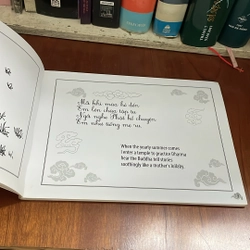 Mỗi khi mùa hè đến
Em lên chùa tập tu
Ngồi nghe Phật kể chuyện
Êm như tiếng mẹ ru.
When the yearly summer comes
I enter a temple to practice Dharma
hear the Buddha tell stories
soothingly like a mother's lullaby.